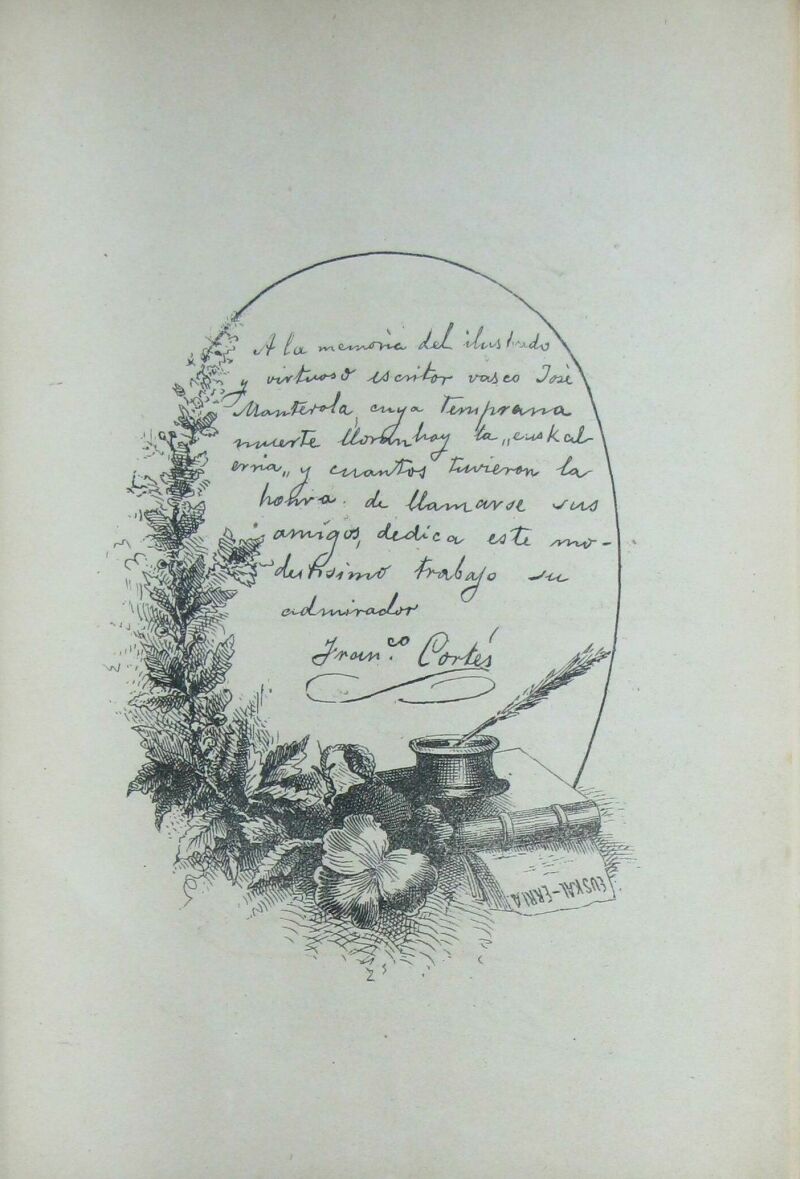 A la memoria del ilustrado
y virtuoso escritor vasco José
Manterola, cuya temprana
muerte lloran hoy la „euskal
erria„ y cuantos tuvieron la
honra de llamarse sus
amigos, dedica este mo-
destisimo trabajo su
admirador
Fran.co Cortés
EUSKAL-ERRIA